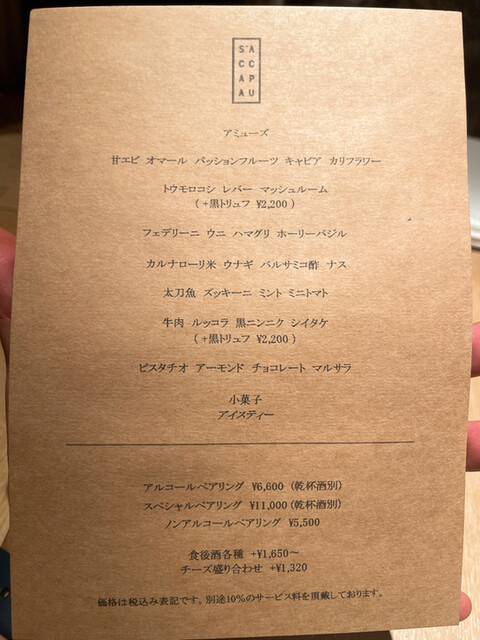 S'ACCAPAU
アミューズ
甘エビ オマール パッションフルーツ キャビア カリフラワー
トウモロコシ レバー マッシュルーム
( +黒トリュフ ¥2,200 )
フェデリーニ ウニ ハマグリ ホーリーバジル
カルナローリ米 ウナギ バルサミコ酢 ナス
太刀魚 ズッキーニ ミント ミニトマト
牛肉 ルッコラ 黒ニンニク シイタケ
( +黒トリュフ ¥2,200 )
ピスタチオ アーモンド チョコレート マルサラ
小菓子
アイスティー
アルコールペアリング ¥6,600 (乾杯酒別)
スペシャルペアリング ¥11,000 (乾杯酒別)
ノンアルコールペアリング ¥5,500
食後酒各種 +¥1,650～
チーズ盛り合わせ +¥1,320
価格は税込み表記です。別途10%のサービス料を頂戴しております。